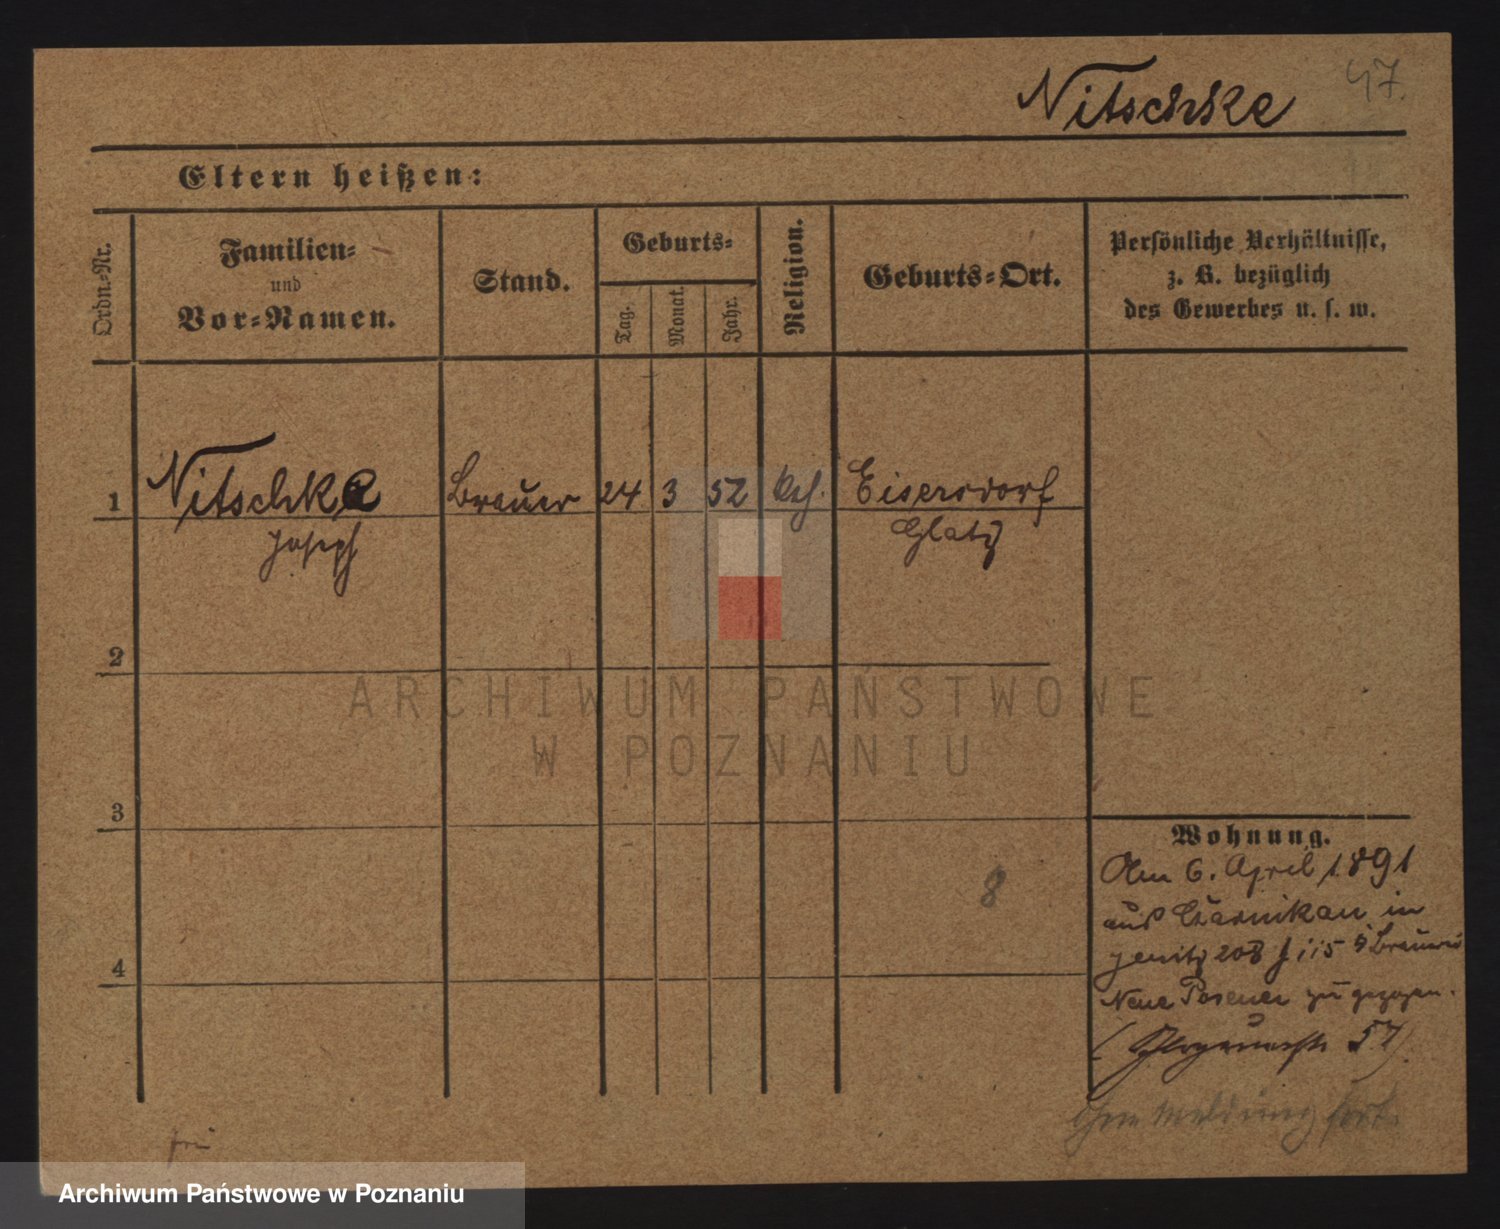 Nitschke
47.
Eltern heißen:
Ordn.-Nr.
Familien-
und
Vor-Namen.
Stand.
Geburts-
Tag.
Monat.
Jahr.
Religion.
Geburts-Ort.
Persönliche Verhältnisse,
z. B. bezüglich
des Gewerbes u. s. w.
1 Nitschke Brauer 24 3 52 kth. Eisersdorf
Joseph Glatz
2
3
4
8
Wohnung.
Am 6. April 1891
aus Czarnikau in
208 115
Neue Posener zugezogen.
57)
ohne Meldung fort.
ARCHIWUM PAŃSTWOWE
W POZNANIU
Archiwum Państwowe w Poznaniu